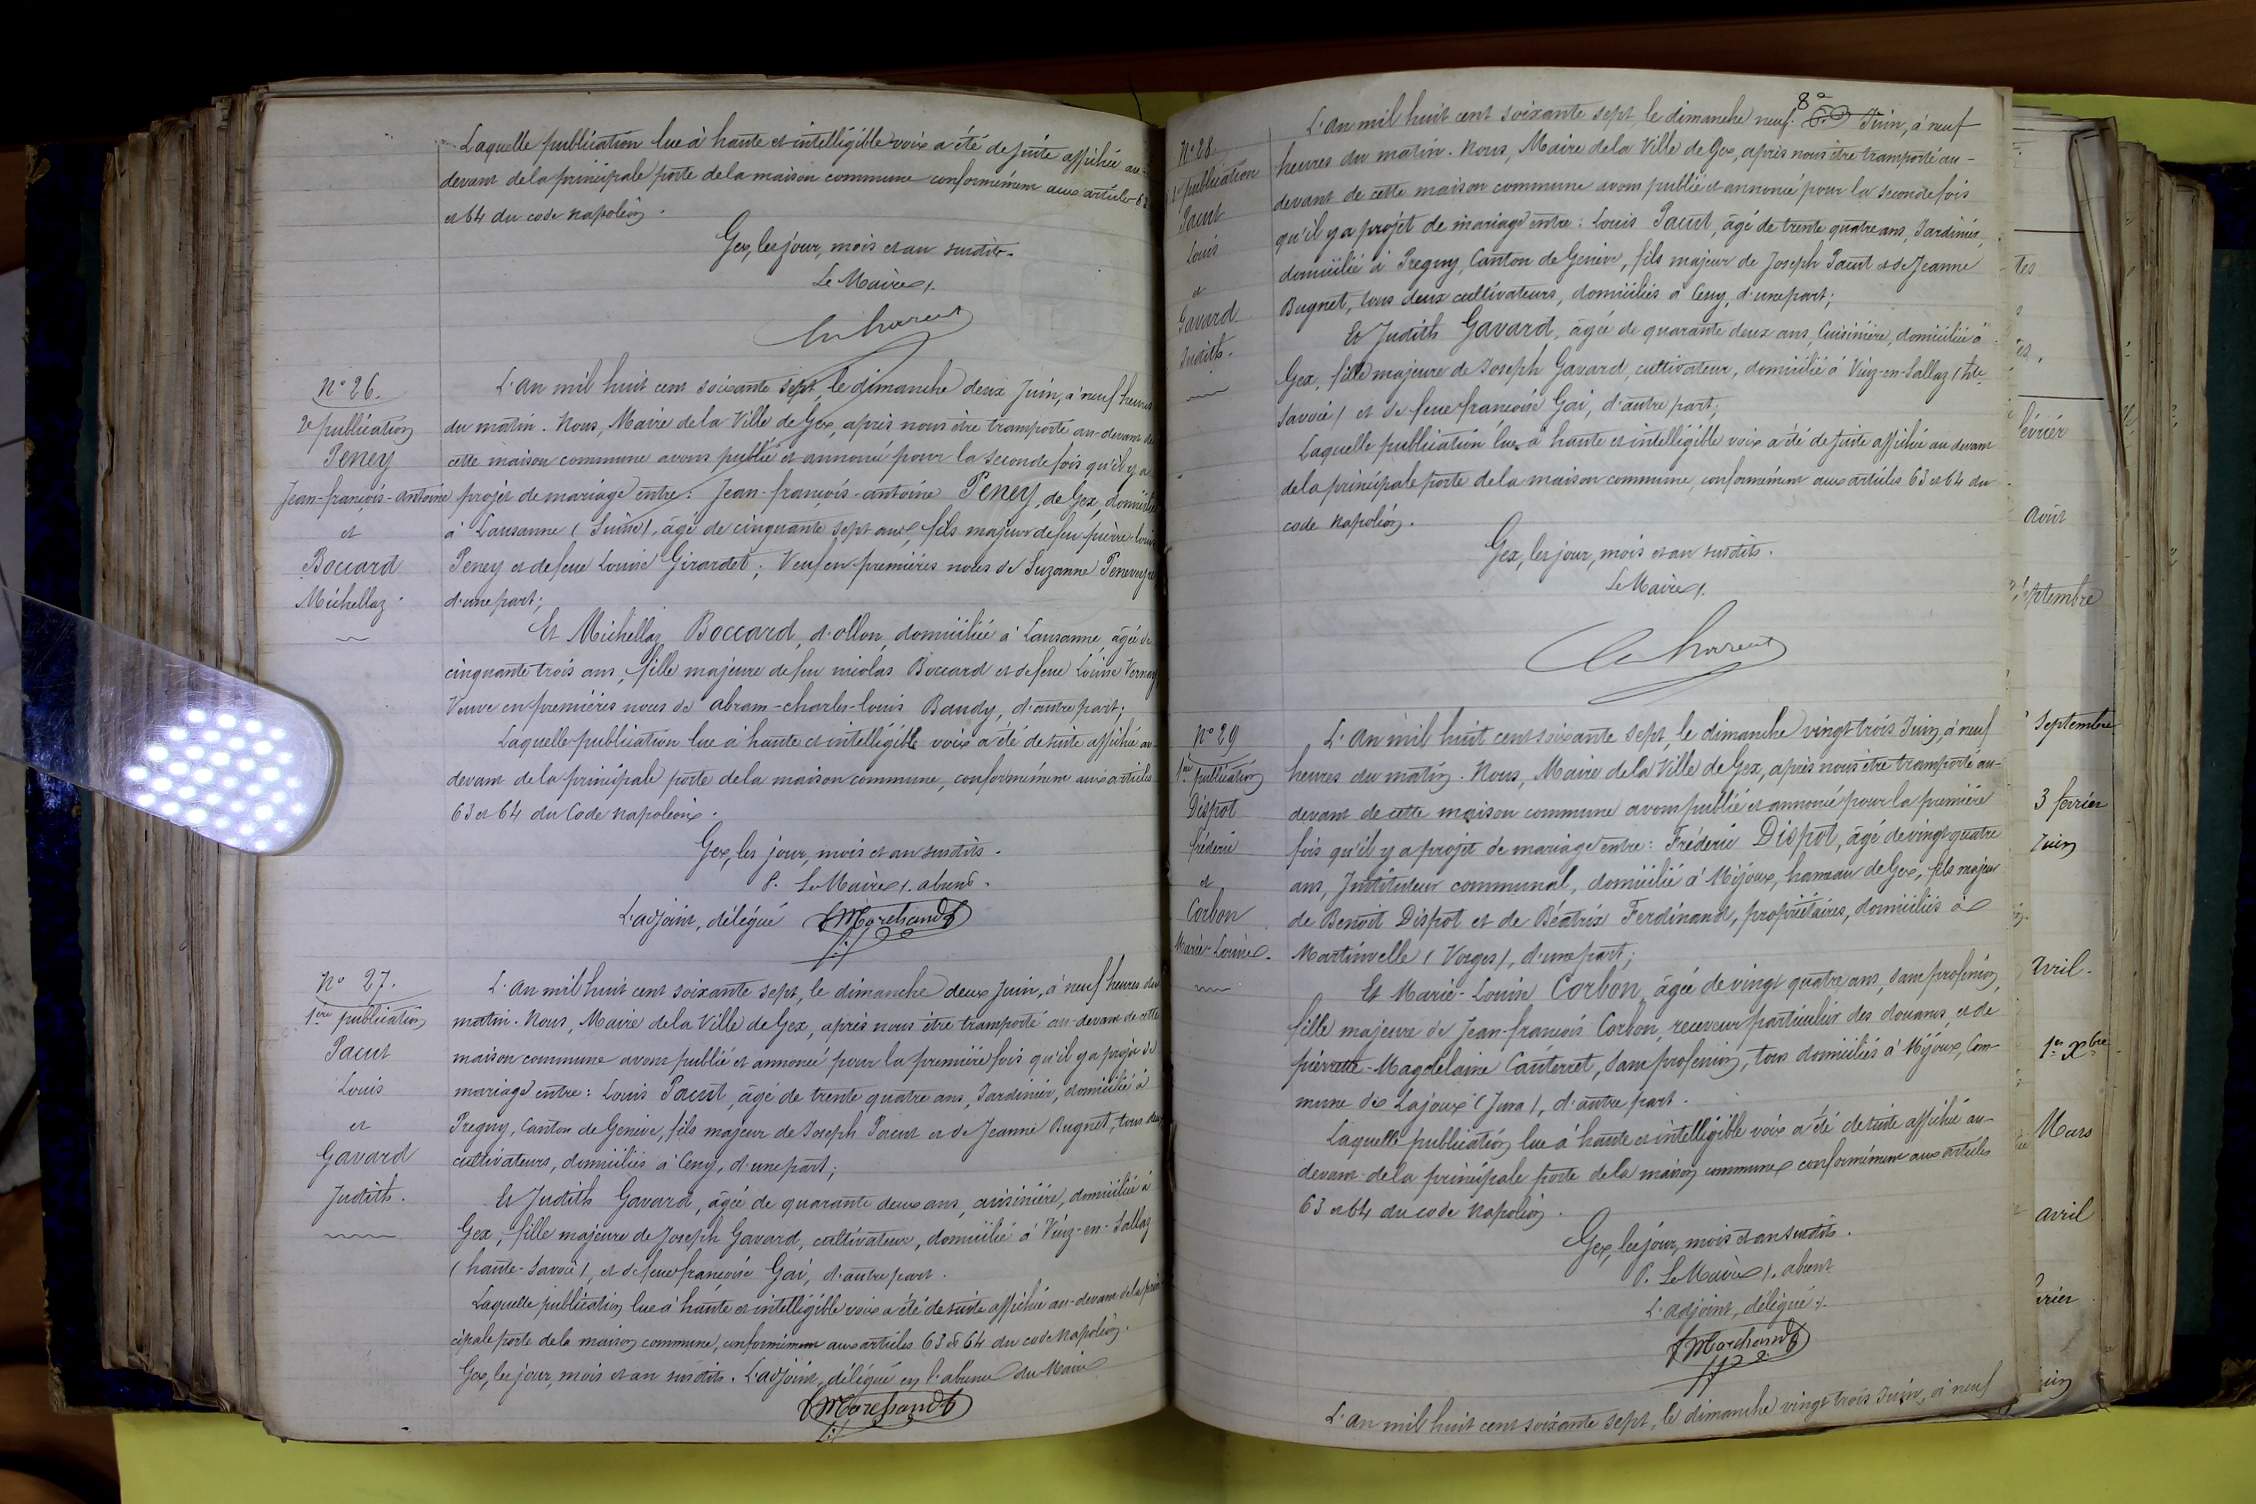 Laquelle publication lue à haute et intelligible voix a été de suite affichée au-
devant de la principale porte de la maison commune conformément aux articles 63
et 64 du code napoléon.
Gex, les jour, mois et an susdits.
Le Maire,
N° 26.
2e publication
Peney
Jean-françois-antoine
et
Boccard
Michellaz.
L'an mil huit cent soixante sept, le dimanche deux Juin, à neuf heures
du matin. Nous, Maire de la Ville de Gex, après nous être transporté au-devant de
cette maison commune avons publié et annoncé pour la seconde fois qu'il y a
projet de mariage entre: Jean-françois-antoine Peney, de Gex, domicilié
à Lausanne (Suisse), âgé de cinquante sept ans, fils majeur de feu pierre-louis
Peney et de feue Louise Girardet; Veuf en premières noces de Suzanne Peneveyre
d'une part;
Et Michellaz Boccard, d'ollon, domiciliée à Lausanne, âgée de
cinquante trois ans, fille majeure de feu nicolas Boccard et de feue Louise Vernay
Veuve en premières noces de abram-charles-louis Baudy, d'autre part;
Laquelle publication lue à haute et intelligible voix a été de suite affichée au-
devant de la principale porte de la maison commune, conformément aux articles
63 et 64 du Code napoléon.
Gex, les jour, mois et an susdits.
P. Le Maire, absent.
L'adjoint, délégué Marchand
N° 27.
1ère publication
Pacut
Louis
et
Gavard
Judith.
L'an mil huit cent soixante sept, le dimanche deux Juin, à neuf heures du
matin. Nous, Maire de la Ville de Gex, après nous être transporté au-devant de cette
maison commune avons publié et annoncé pour la première fois qu'il y a projet de
mariage entre: Louis Pacut, âgé de trente quatre ans, Jardinier, domicilié à
Pregny, Canton de Genève, fils majeur de Joseph Pacut et de Jeanne Bugnet, tous deux
cultivateurs, domiciliés à Cessy, d'une part;
Et Judith Gavard, âgée de quarante deux ans, cuisinière, domiciliée à
Gex, fille majeure de Joseph Gavard, cultivateur, domicilié à Viuz-en-Sallaz
(haute-Savoie), et de feue françoise Gai, d'autre part.
Laquelle publication lue à haute et intelligible voix a été de suite affichée au-devant de la prin
cipale porte de la maison commune, conformément aux articles 63 et 64 du code Napoléon.
Gex, les jour, mois et an susdits. L'adjoint, délégué en l'absence du Maire
Marchand
N° 28.
publication
Pacut
Louis
et
Gavard
Judith.
8
L'an mil huit cent soixante sept, le dimanche neuf Juin, à neuf
heures du matin. Nous, Maire de la Ville de Gex, après nous être transporté au-
devant de cette maison commune avons publié et annoncé pour la seconde fois
qu'il y a projet de mariage entre: Louis Pacut, âgé de trente quatre ans, Jardinier,
domicilié à Pregny, Canton de Genève, fils majeur de Joseph Pacut et de Jeanne
Bugnet, tous deux cultivateurs, domiciliés à Cessy, d'une part;
Et Judith Gavard, âgée de quarante deux ans, Cuisinière, domiciliée à
Gex, fille majeure de Joseph Gavard, cultivateur, domicilié à Viuz-en-Sallaz (hte
Savoie) et de feue françoise Gai, d'autre part;
Laquelle publication lue à haute et intelligible voix a été de suite affichée au devant
de la principale porte de la maison commune, conformément aux articles 63 et 64 du
code Napoléon.
Gex, les jour, mois et an susdits.
Le Maire,
N° 29
1ère publication
Dispot
frédéric
et
Corbon
Marie-Louise.
L'an mil huit cent soixante sept, le dimanche vingt trois Juin, à neuf
heures du matin. Nous, Maire de la Ville de Gex, après nous être transporté au-
devant de cette maison commune avons publié et annoncé pour la première
fois qu'il y a projet de mariage entre: Frédéric Dispot, âgé de vingt quatre
ans, Instituteur communal, domicilié à Mijoux, hameau de Gex, fils majeur
de Benoit Dispot et de Béatrix Ferdinand, propriétaires, domiciliés à
Martinvelle (Vosges), d'une part;
Et Marie-Louise Corbon, âgée de vingt quatre ans, sans profession,
fille majeure de Jean-françois Corbon, receveur particulier des douanes, et de
pierrette-Magdelaine Canterret, sans profession, tous domiciliés à Mijoux, Com-
mune de Lajoux (Jura), d'autre part.
Laquelle publication lue à haute et intelligible voix a été de suite affichée au-
devant de la principale porte de la maison commune conformément aux articles
63 et 64 du code Napoléon.
Gex, les jour, mois et an susdits.
P. Le Maire, absent
L'adjoint, délégué
Marchand
L'an mil huit cent soixante sept, le dimanche vingt trois Juin, à neuf
tes
février
Août
septembre
Septembre
3 février
Juin
Avril.
1er Xbre
Mars
avril
vrier
uin